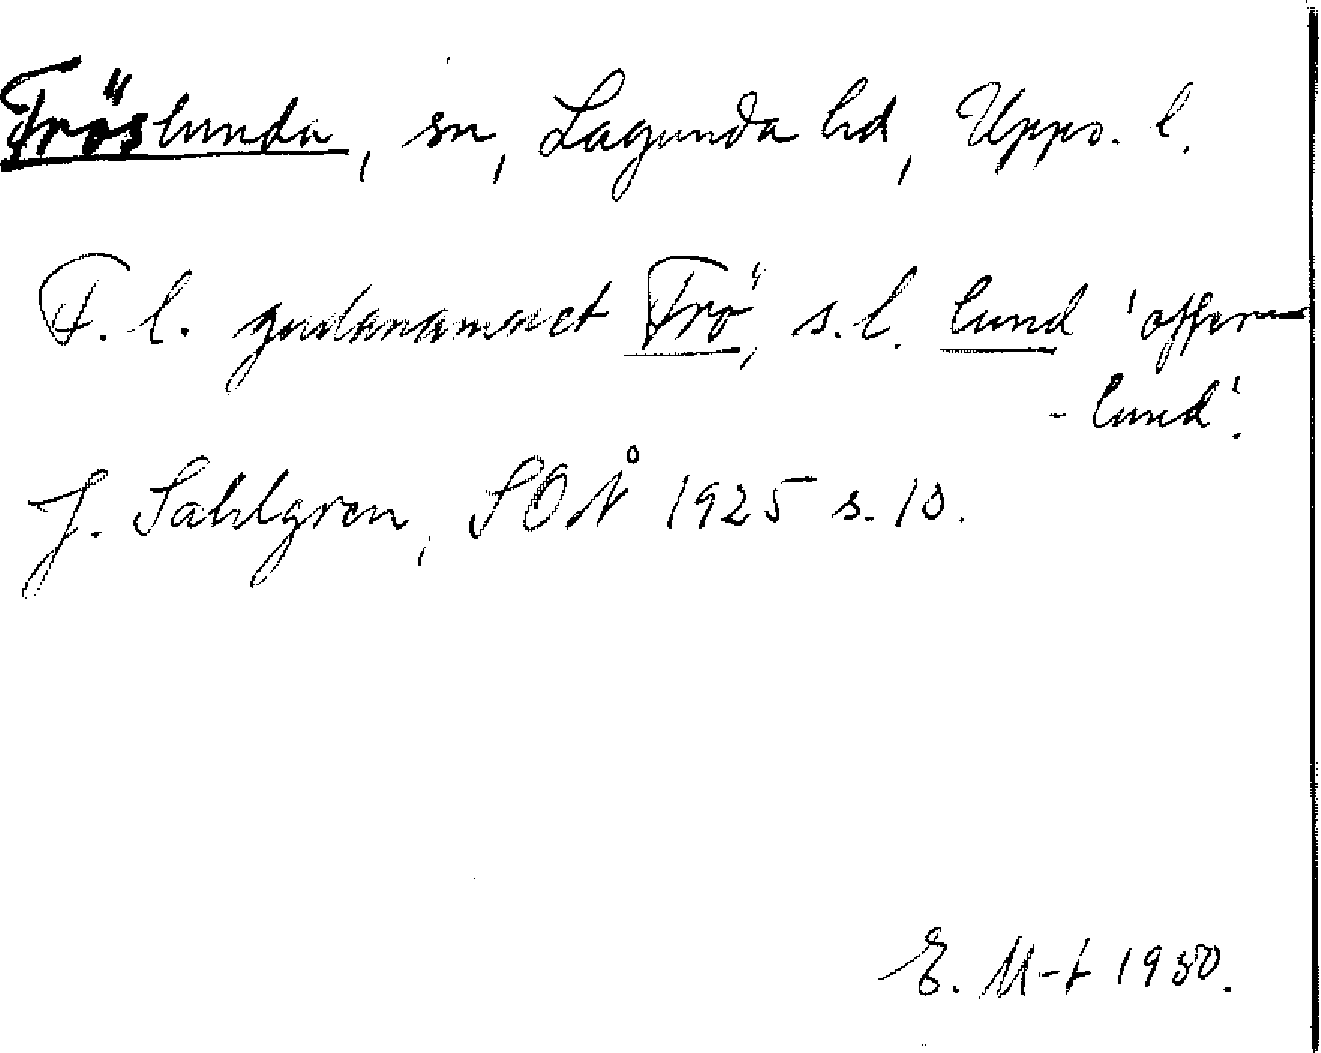 Fröslunda, sn, Lagunda hd, Upps. l.
F. l. gudanamnet Frö, s. l. lund 'offer-
-lund'.
J. Sahlgren, SOÅ 1925 s. 10.
E. M-t 1980.